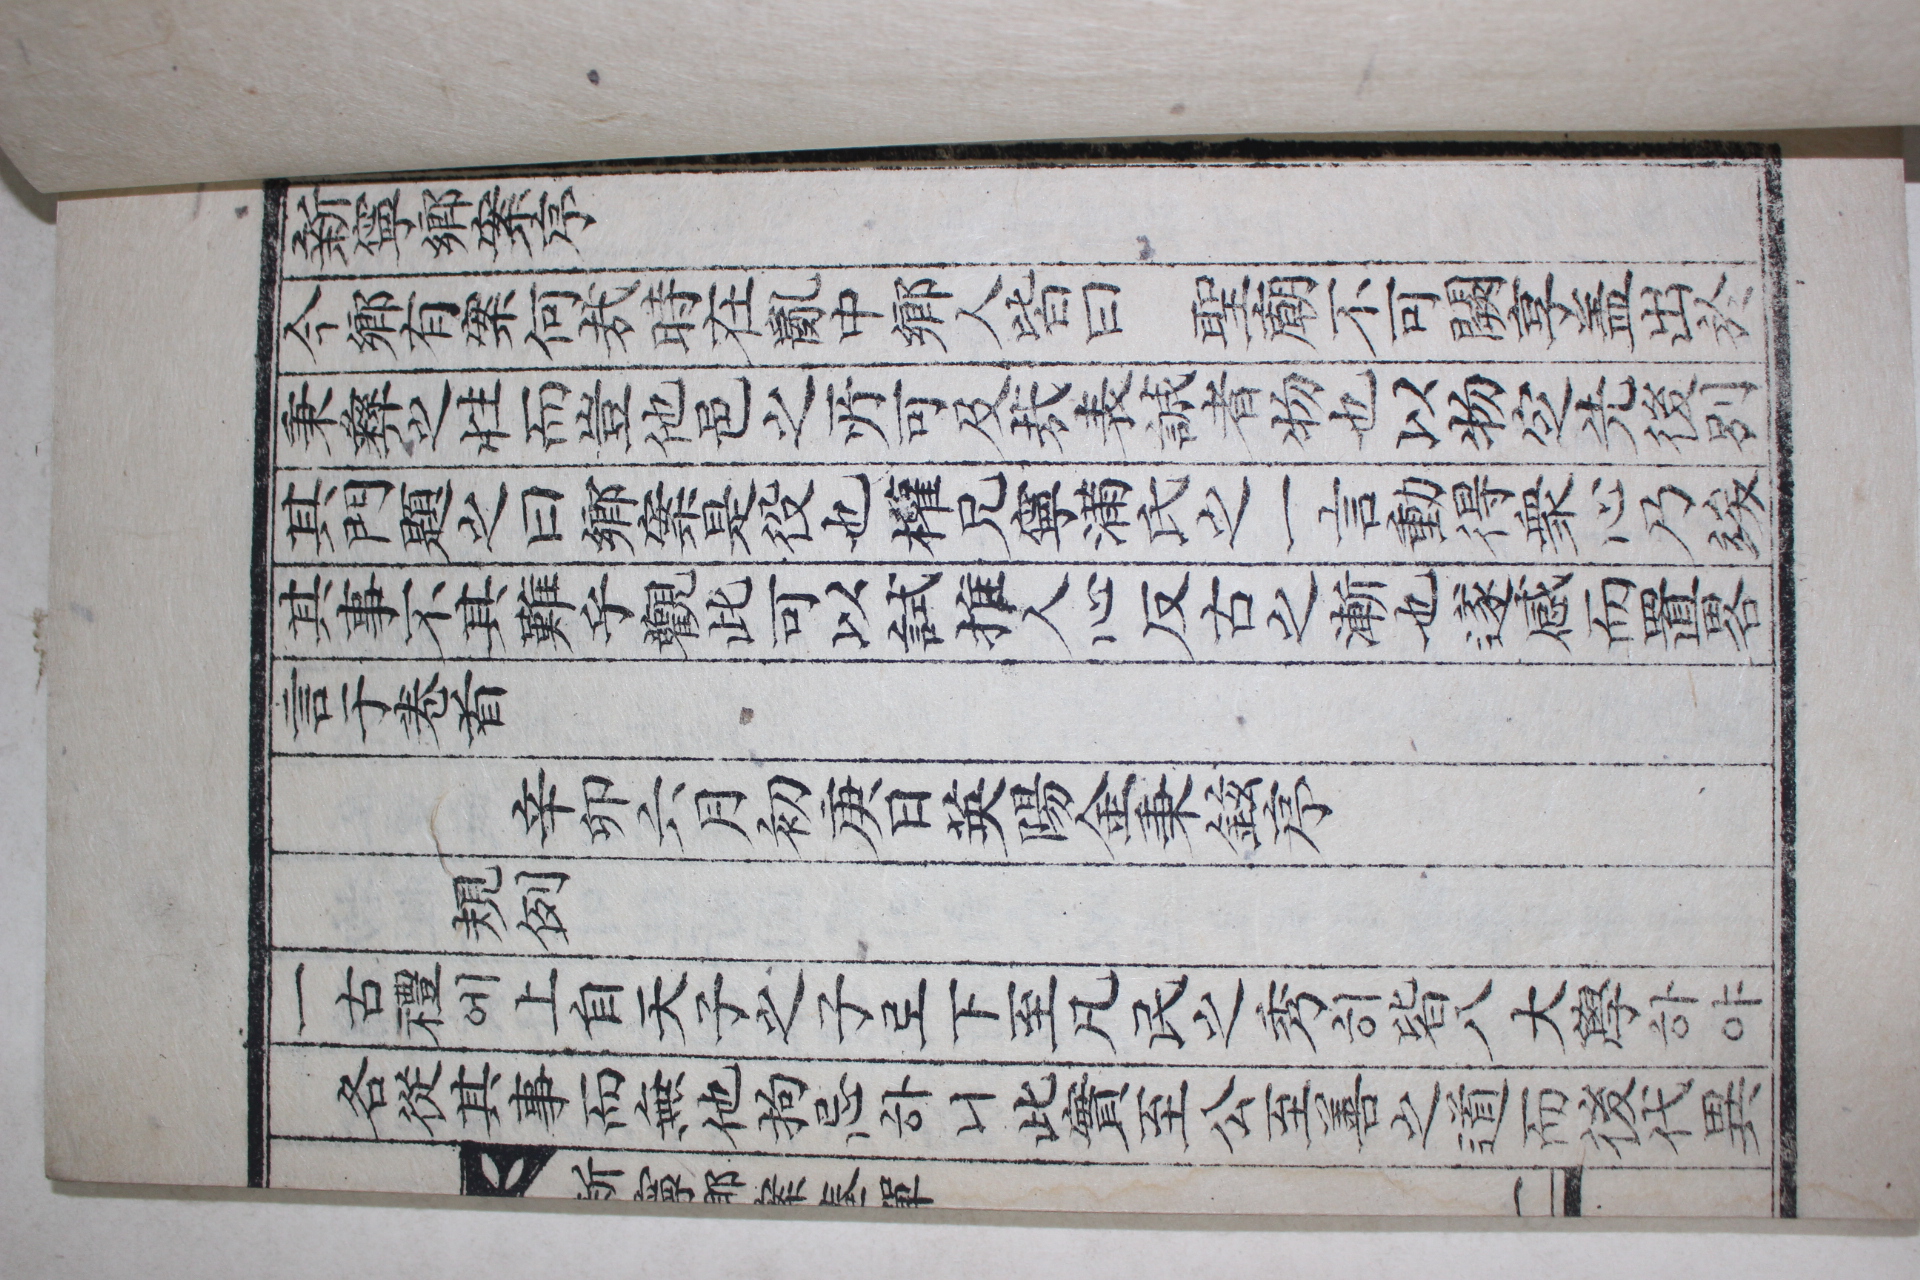 新寧鄕案序
今鄕有案何㦲時在亂中鄕人皆曰 聖廟不可闕享盖出於
秉彜之性而豈他邑之所可及㦲表誠者物也以物定先後別
其門題之曰鄕案是役也權兄寧滿氏之一言動得衆心乃竣
其事不其難乎觀此可以試推人心反古之漸也遂感而置畧
言于卷首
辛卯六月初庚日英陽金秉鉉序
規例
一古禮에上自天子之子로下至凡民之秀히皆入大學하야
各從其事而無他拘忌하니此實至公至善之道而後代異
新寧鄕案 單
一